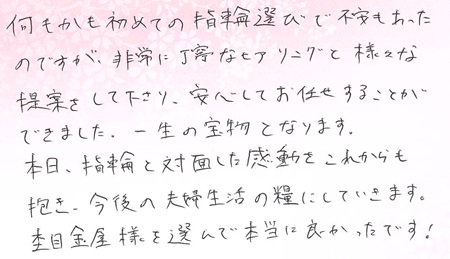 何もかも初めての指輪選びで不安もあった
のですが、非常に丁寧なヒアリングと様々な
提案をして下さり、安心してお任せすることが
できました。一生の宝物となります。
本日、指輪と対面した感動をこれからも
抱き、今後の夫婦生活の糧にしていきます。
杢目金屋様を選んで本当に良かったです!